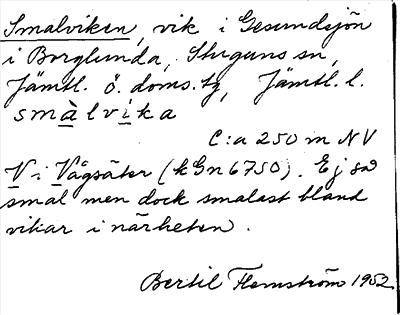 Smalviken, vik i Gesundsjön
i Borglunda, Stuguns sn,
Jämtl. ö. doms. tg, Jämtl. l.
smàlvika
C:a 250 m NV
V i Vågsäter (kGn 6750). Ej så
smal men dock smalast bland
vikar i närheten.
Bertil Flemström 1952